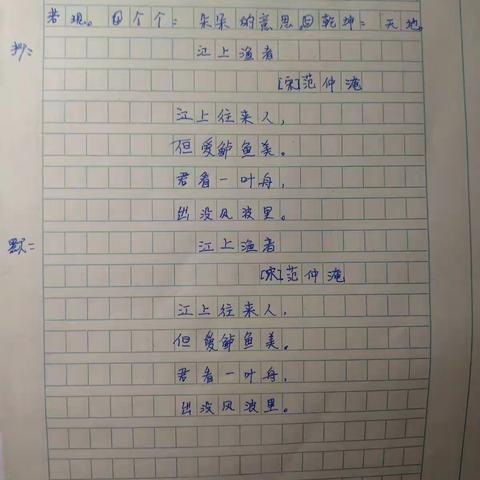 表现。④个个：朵朵的意思⑤乾坤：天地。
抄：
江上渔者
[宋]范仲淹
江上往来人，
但爱鲈鱼美。
君看一叶舟，
出没风波里。
默：
江上渔者
[宋]范仲淹
江上往来人，
但爱鲈鱼美。
君看一叶舟，
出没风波里。